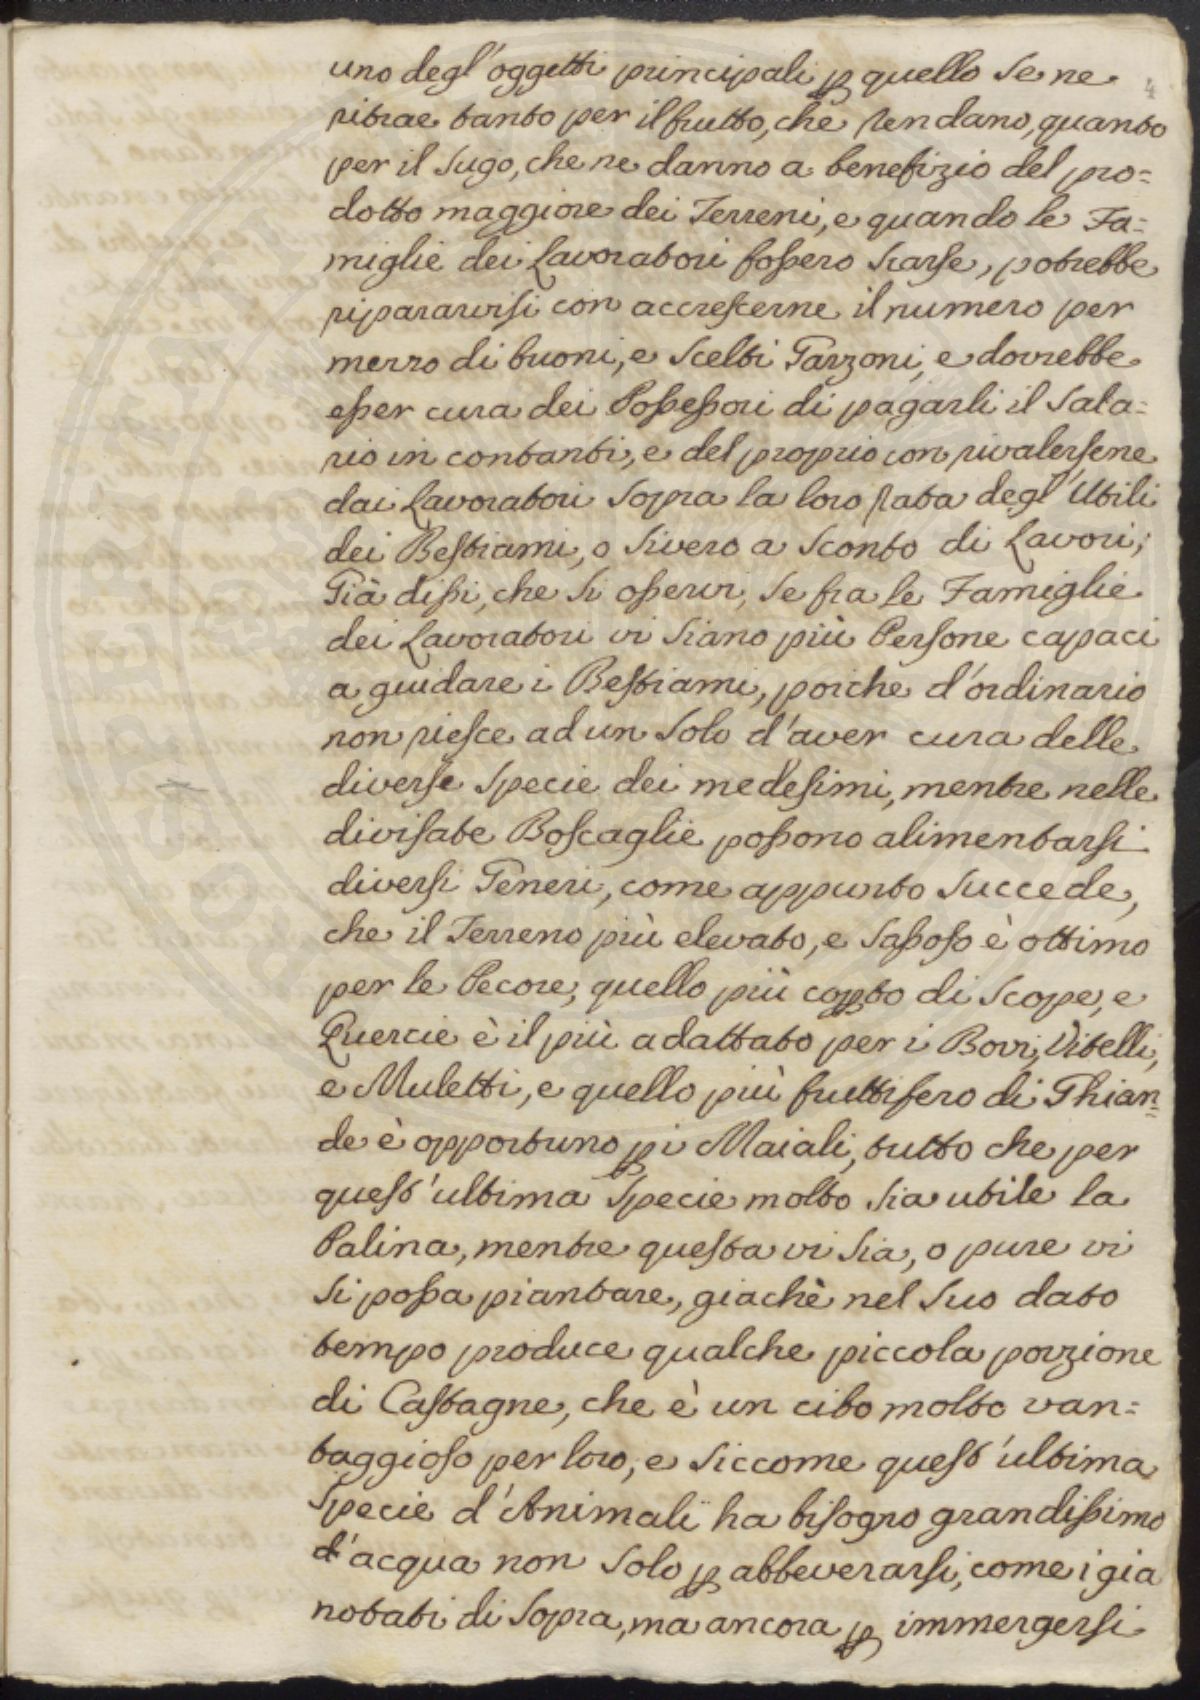 4
uno degl'oggetti principali p quello se ne
ritrae tanto per il frutto, che rendano, quanto
per il sugo, che ne danno a benefizio del pro=
dotto maggiore dei Terreni, e quando le Fa=
miglie dei Lavoratori fossero scarse, potrebbe
ripararvisi con accrescerne il numero per
mezzo di buoni, e scelti Garzoni, e dovrebbe
esser cura dei Possessori di pagarli il sala=
rio in contanti, e del proprio con rivalersene
dai Lavoratori sopra la loro rata degl'Utili
dei Bestiami, o sivero a sconto di Lavori;
Già dissi, che si osservi, se fra le Famiglie
dei Lavoratori vi siano più Persone capaci
a guidare i Bestiami, poiche d'ordinario
non riesce ad un solo d'aver cura delle
diverse specie dei medesimi, mentre nelle
divisate Boscaglie possono alimentarsi
diversi Generi, come appunto succede,
che il Terreno più elevato, e sassoso è ottimo
per le Pecore, quello più copto di Scope, e
Quercie è il più adattato per i Bovi, Vitelli,
e Muletti, e quello più fruttifero di Ghian=
de è opportuno p i Maiali, tutto che per
quest'ultima specie molto sia utile la
Palina, mentre questa vi sia, o pure vi
si possa piantare, giachè nel suo dato
tempo produce qualche piccola porzione
di Castagne, che è un cibo molto van=
taggioso per loro, e siccome quest'ultima
specie d'Animali ha bisogno grandissimo
d'acqua non solo p abbeverarsi, come i gia
notati di sopra, ma ancora p immergersi
PROSPERITATI